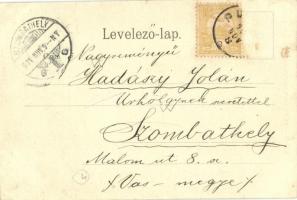 Levelező-lap.
Nagyreményű
Hadásy Jolán
Urhölgynek
Szombathely
Malom ut 8. sz.
(Vas-megye)